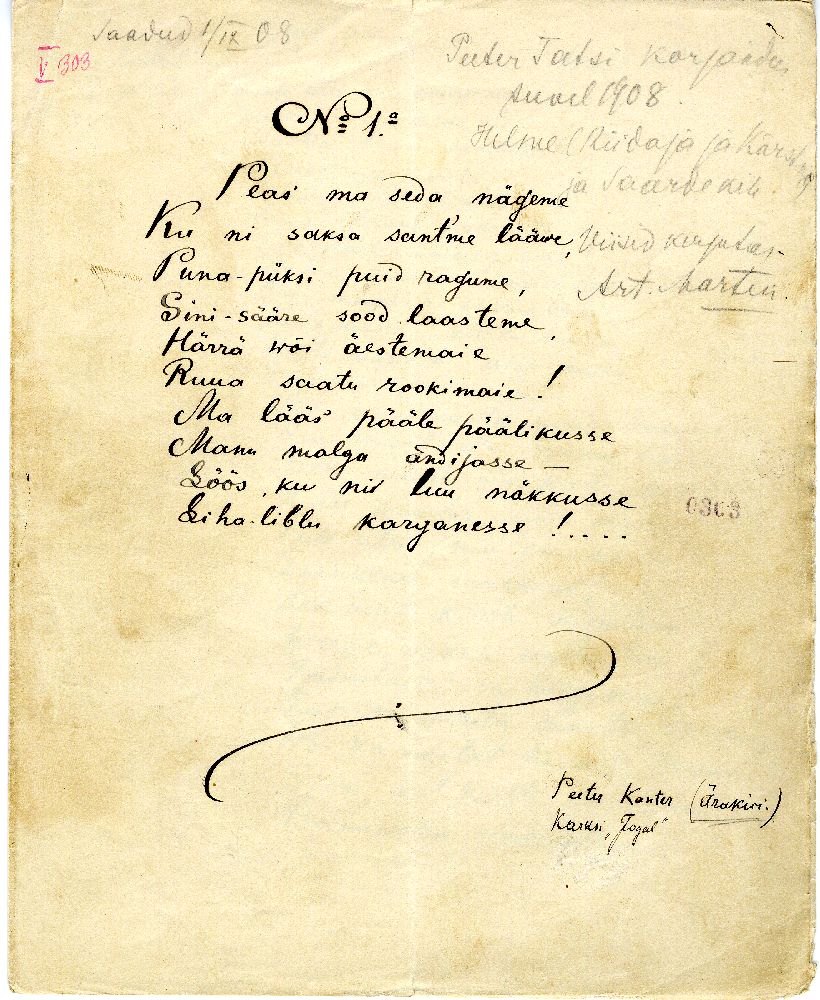 Saadud 1/IX 08
V 303
Peeter Tatsi korjandus
suvel 1908.
Helme (Riidaja ja Kärstna)
ja Saardekih.
Viisid kirjutas
Art. Marten.
No 1.a
Peas ma seda nägeme
Ku ni saksa sant'me lääwe,
Puna-püksi puid ragume,
Sini-sääre sood laasteme,
Härrä wõi äestemaie
Ruua saatu rookimaie!
Ma lääs pääle päälikusse
Manu malga andijasse –
Löös, ku nii luu näkkusse
Liha-liblu karganesse!.....
0303
Peeter Kanter (Ärakiri.)
Karksi,